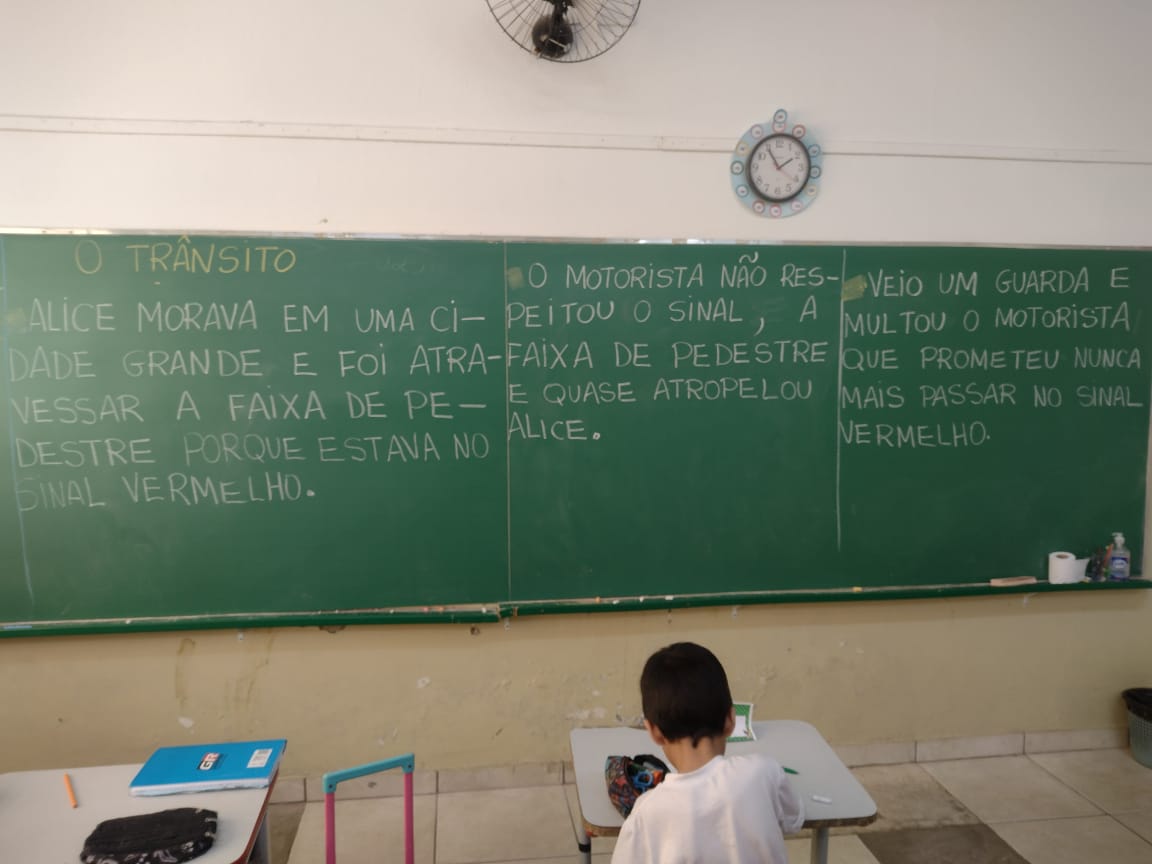 O TRÂNSITO
ALICE MORAVA EM UMA CI-
DADE GRANDE E FOI ATRA-
VESSAR A FAIXA DE PE-
DESTRE PORQUE ESTAVA NO
SINAL VERMELHO.
O MOTORISTA NÃO RES-
PEITOU O SINAL, A
FAIXA DE PEDESTRE
E QUASE ATROPELOU
ALICE.
VEIO UM GUARDA E
MULTOU O MOTORISTA
QUE PROMETEU NUNCA
MAIS PASSAR NO SINAL
VERMELHO.